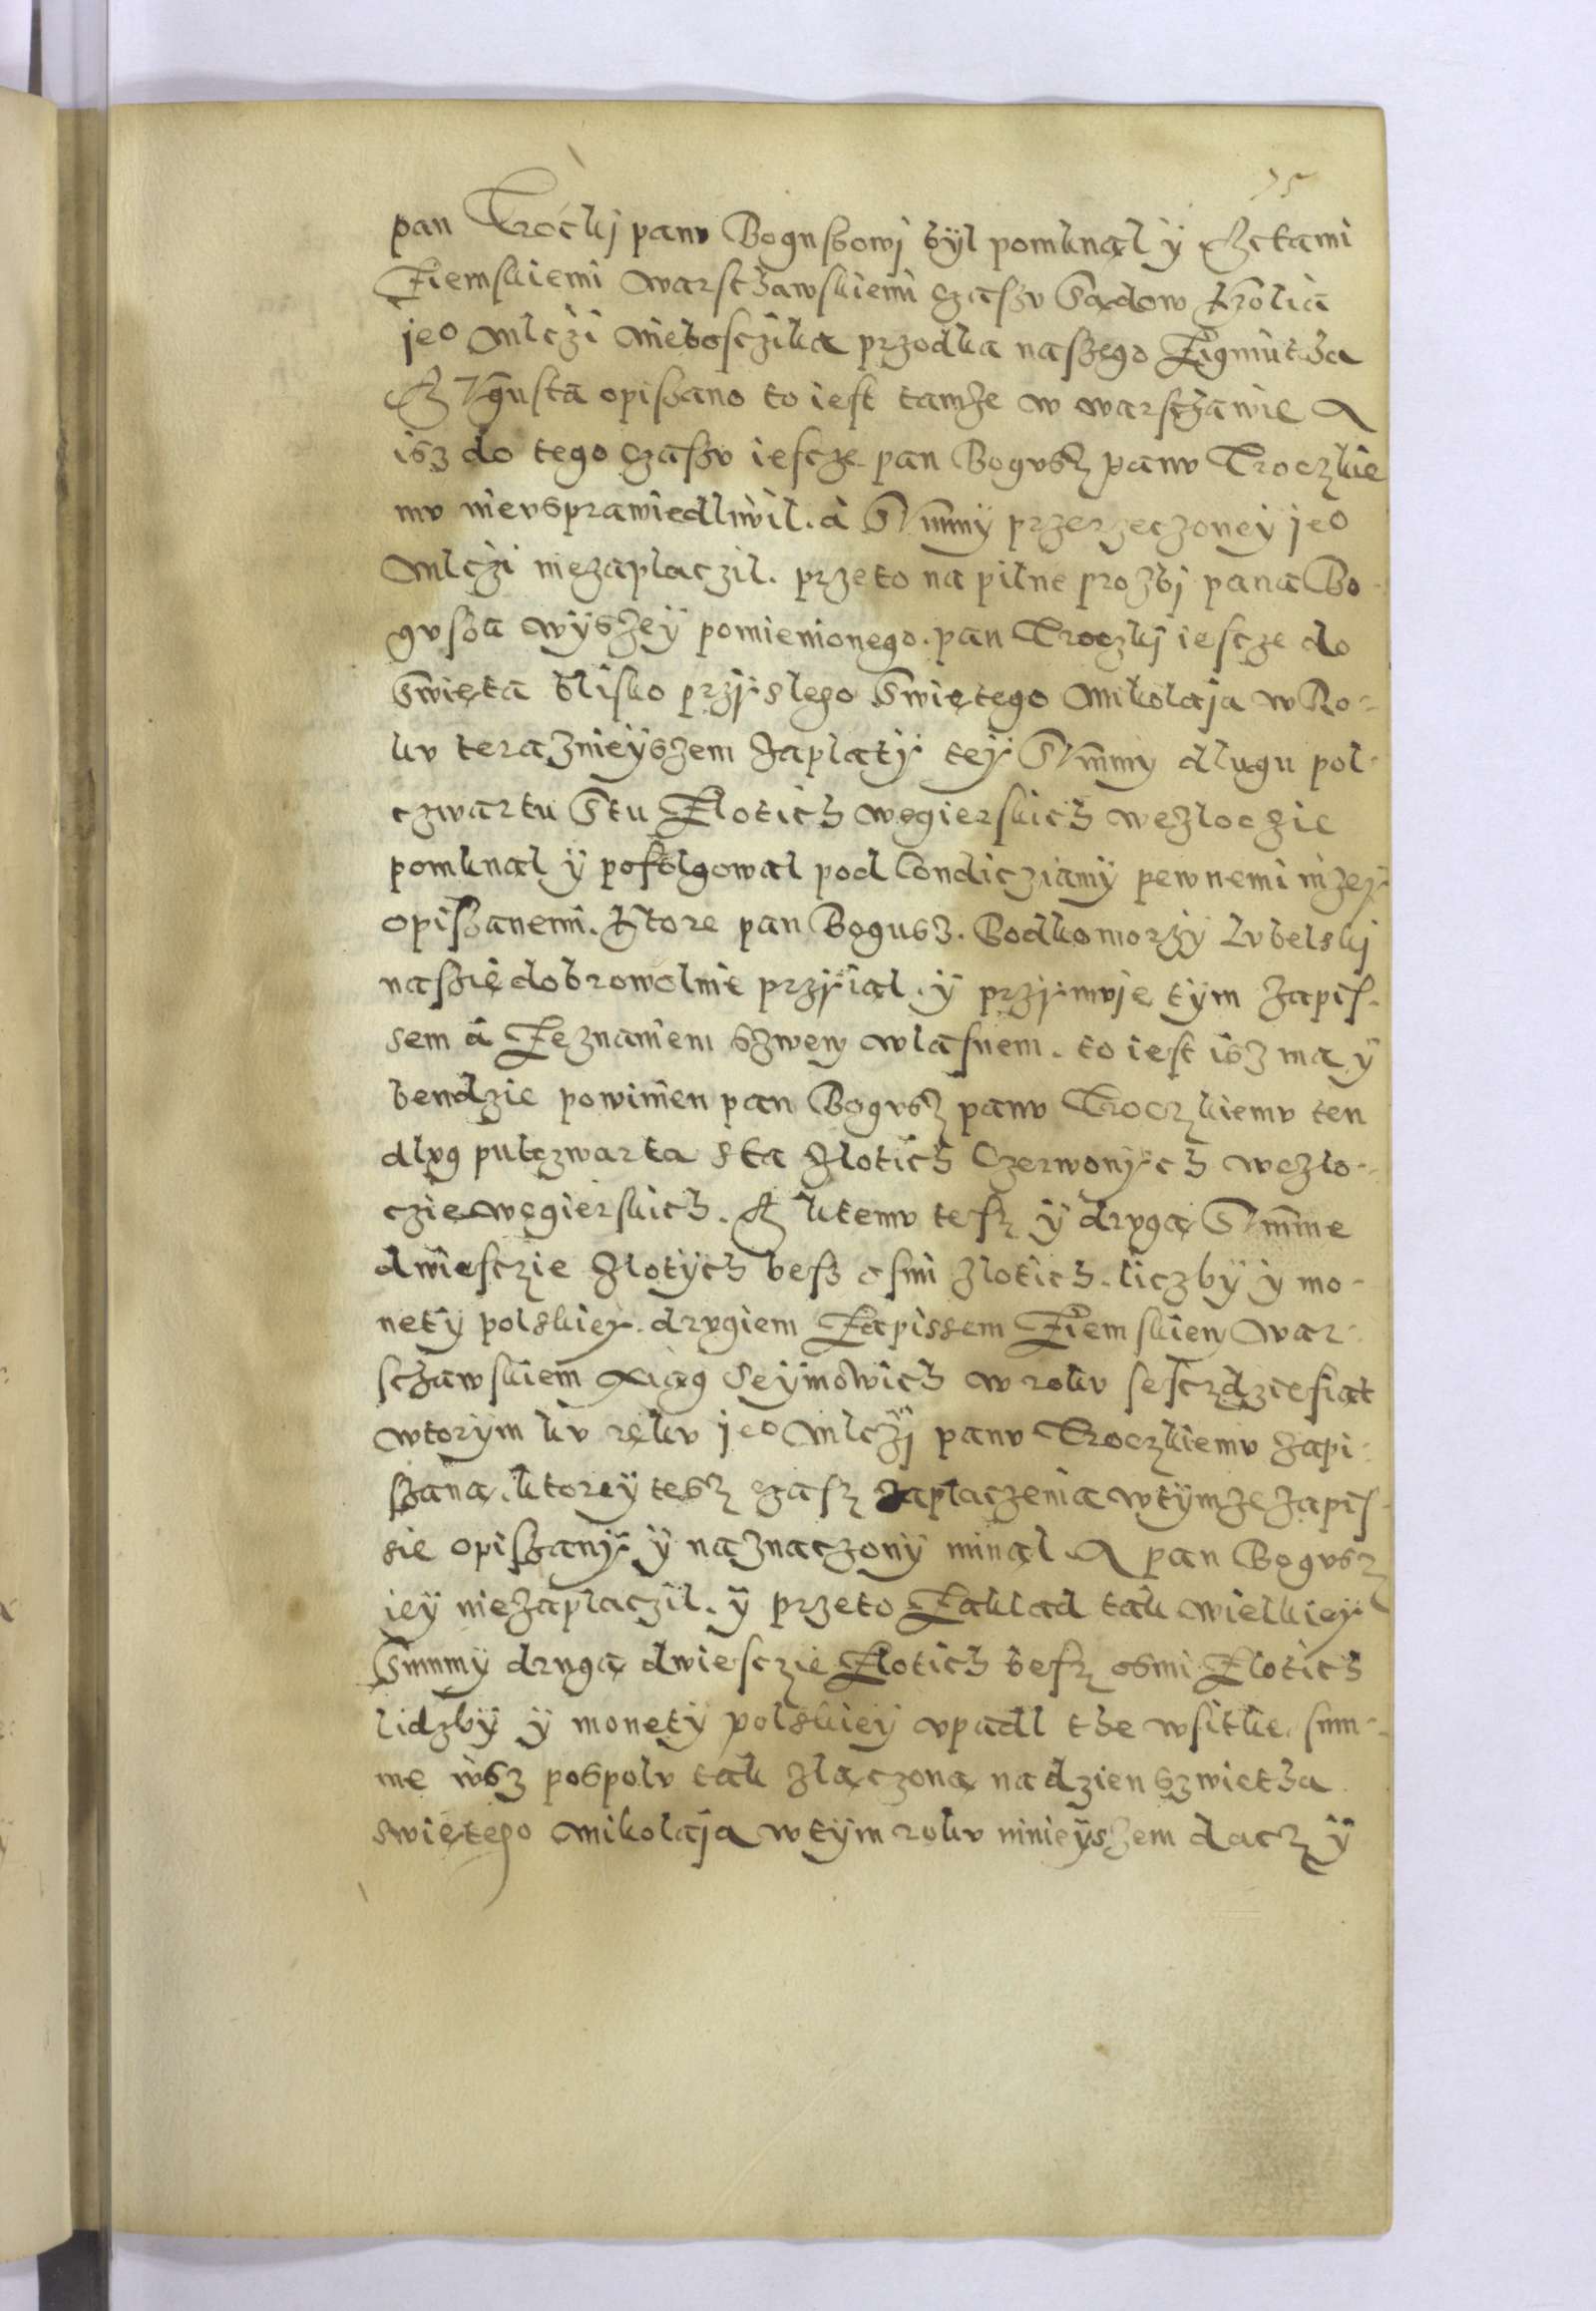 75
pan Troćkj panv Bogusżowj bÿl pomknąl ÿ Actami
Ziemskiemi warsczawskiemi czasżv Sądow krolia
jeo Mlczi Niebosczika przodka naszego Zigmutha
AVgusta opiszano to iest tamże w warsczawie A
isz do tego czaszv iescze pan Bogvsz panv Troczkie
mv nievsprawiedliwil. a SVmmÿ przerzeczoneÿ jeo
Mlczi niezaplaczil. przeto na pilne prozbj pana Bo-
gvsza wÿszeÿ pomienionego. pan Troczkj iescze do
Swięta blisko przÿslego Swiętego Mikolaja w Ro-
kv teraznieÿszem zaplatÿ teÿ SVmmy dlugu pol-
czwartu Stu Zlotich węgierskich wezloczie
pomknąl ÿ pofolgowal pod Condicziamÿ pewnemi nizeÿ
opiszanemi. ktore pan Bogusz. Podkomorzÿ Lvbelskj
naszię dobrowolnie przÿiąl. ÿ przÿmvje tÿm zapis-
sem á Zeznaniem szwem wlasnem. to iest isz ma ÿ
bendzie powinien pan Bogvsz panv Troczkiemv ten
dlvg pulczwarta sta zlotich Czerwonÿch wezlo-
czie węgierskich. A ktemv tesz ÿ drvgą SVmme
dwiesczie zlotÿch besz osmi zlotich. liczbÿ ÿ mo-
netÿ polskieÿ. drvgiem Zapissem Ziemskiem War-
sczawskiem xiąg Seÿmowich w rokv sesczdziesiąt
wtorÿm kv rękv jeo Mlczj panv Troczkiemv zapi-
szaną. ktoreÿ tesz czasz zaplaczenia wtÿmże zapis-
sie opiszanÿ ÿ naznaczonÿ minąl. A pan Bogvsz
ieÿ niezaplaczil. ÿ przeto Zaklad tak wielkieÿ
Summÿ drugą dwiesczie Zlotich besz osmi Zlotich
lidzbÿ ÿ monetÿ polskieÿ vpadl the wsitke. sum-
me wsz pospolv tak zlączoną nadzien szwietha
swiętego Mikolaja wtÿm rokv ninieÿszem dacz ÿ